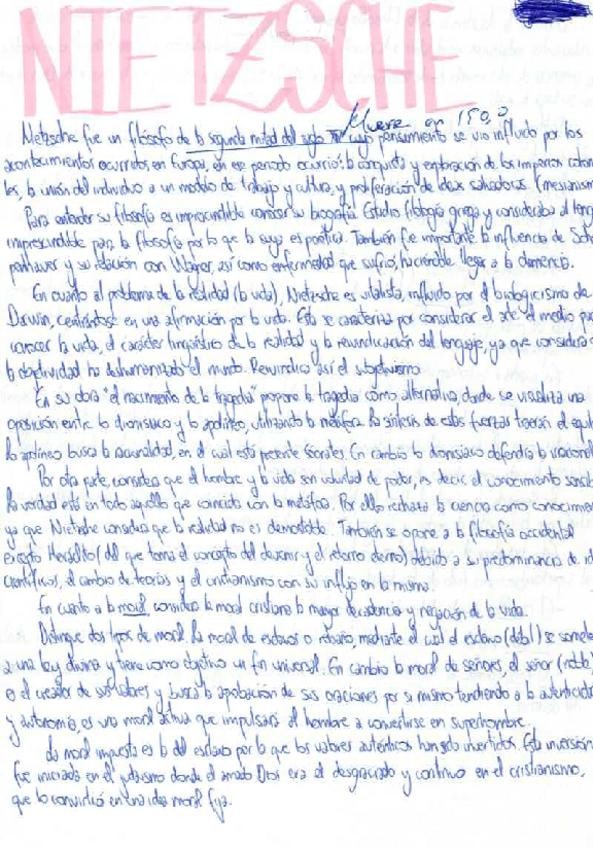 NIETZSCHE
Muere en 1900
Nietzsche fue un filósofo de la segunda mitad del siglo XIX cuyo pensamiento se vio influido por los
acontecimientos ocurridos, en Europa, en ese periodo ocurrió: la conquista y exploración de los imperios colonia
les, la unión del individuo a un modelo de trabajo y cultura, y proliferación de ideas salvadoras. (mesianismo
Para entender su filosofía es imprescindible conocer su biografía. Estudio filología griega y consideraba al leng
imprescindible para la filosofía por lo que la suya es poética. También fue importante la influencia de Scho
penhauer y su relación con Wagner, así como enfermedad que sufrió, haciéndole llegar a la demencia.
En cuanto al problema de la realidad (la vida), Nietzsche es vitalista, influido por el biologicismo de
Darwin, centrándose en una afirmación por la vida. Esta se caracteriza por considerar el arte el medio para
conocer la vida, el carácter lingüístico de la realidad y la reivindicación del lenguaje, ya que considera q
la objetividad ha deshumanizado el mundo. Reivindica así el subjetivismo
En su obra "el nacimiento de la tragedia" propone la tragedia como alternativa, donde se visualiza una
oposición entre lo dionisíaco y lo apolíneo, utilizando la metáfora. La síntesis de estas fuerzas traerán el equil
Lo apolíneo busca la racionalidad, en el cual está presente Sócrates. En cambio lo dionisiaco defendía lo irracional
Por otra parte, considera que el hombre y la vida son voluntad de poder, es decir, el conocimiento
La verdad está en todo aquello que coincida con la metáfora. Por ello rechaza la ciencia como conocimien
ya que Nietzsche considera que la realidad no es demostrable. También se opone a la filosofía occidental
excepto Heráclito (del que toma el concepto del devenir y el retorno eterno) debido a su predominancia de id
científicos, el cambio de teorías y el cristianismo con su influjo en la misma.
En cuanto a la moral considera la moral cristiana la mayor decadencia y negación de la vida.
Distingue dos tipos de moral. La moral de esclavos o rebaño, mediante el cual el esclavo (débil) se somete
a una ley divina y tiene como objetivo un fin universal. En cambio la moral de señores, el señor (noble)
es el creador de sus valores y busca la aprobación de sus creaciones por si mismo tendiendo a la autenticida
y autonomía, es una moral activa que impulsará al hombre a convertirse en superhombre.
La moral impuesta es la del esclavo por lo que los valores auténticos han sido invertidos. Esta inversión
fue iniciada en el judaísmo donde el amado Dios era el desgraciado y continuo en el cristianismo,
que lo convirtió en una idea moral fija.